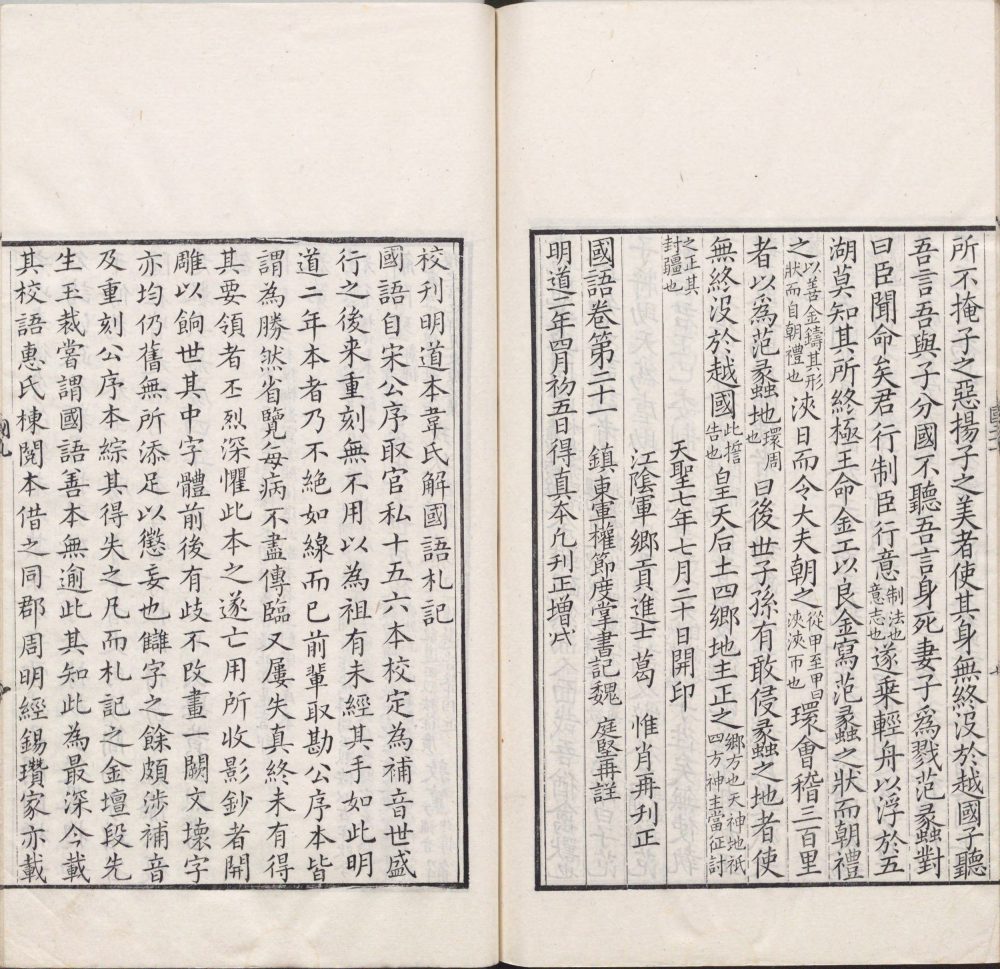 所不掩子之惡揚子之美者使其身無終沒於越國子聽
吾言吾與子分國不聽吾言身死妻子爲戮范蠡對
曰臣聞命矣君行制臣行意制法也意志也遂乘輕舟以浮於五
湖莫知其所終極王命金工以良金寫范蠡之狀而朝禮
之以善金鑄其形狀而自朝禮也浹日而令大夫朝之從甲至甲曰浹浹帀也環會稽三百里
者以爲范蠡地環周也曰後世子孫有敢侵蠡之地者使
無終沒於越國此誓告也皇天后土四鄉地主正之鄉方也天神地祇四方神主當征討
之正其封疆也
天聖七年七月二十日開印
江陰軍鄉貢進士葛惟肖再刊正
國語卷第二十一 鎮東軍權節度掌書記魏庭堅再詳
明道二年四月初五日得真本凡刊正增减
校刊明道本韋氏解國語札記
國語自宋公序取官私十五六本校定為補音世盛
行之後来重刻無不用以為祖有未經其手如此明
道二年本者乃不絶如線而已前輩取勘公序本皆
謂為勝然省覽每病不盡傳臨又屢失真終未有得
其要領者丕烈深懼此本之遂亡用所收影鈔者開
雕以餉世其中字體前後有歧不改畫一闕文壞字
亦均仍舊無所添足以懲妄也讎字之餘頗涉補音
及重刻公序本綜其得失之凡而札記之金壇段先
生玉裁嘗謂國語善本無逾此其知此為最深今載
其校語惠氏棟閱本借之同郡周明經錫瓚家亦載